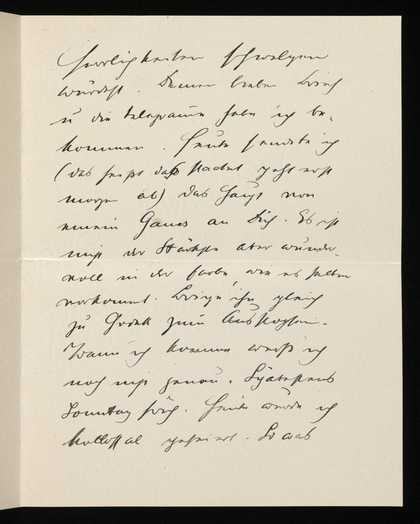 Herrlichkeiten schwelgen
würdest. Deinen lieben Brief
u die telegramme habe ich be-
kommen. Heute sendete ich
(das heißt das Packet geht erst
morgen ab) das Haupt von
einem Gams an Dich. Es ist
nicht der Stärkste aber wunder-
voll in der Farbe wie es selten
vorkommt. Bringe ihn gleich
zu Hodek zum Ausstopfen.
Wann ich komme weiß ich
noch nicht genau. Spätestens
Sonntag früh. Heute wurde ich
kollossal gefeiert. So was